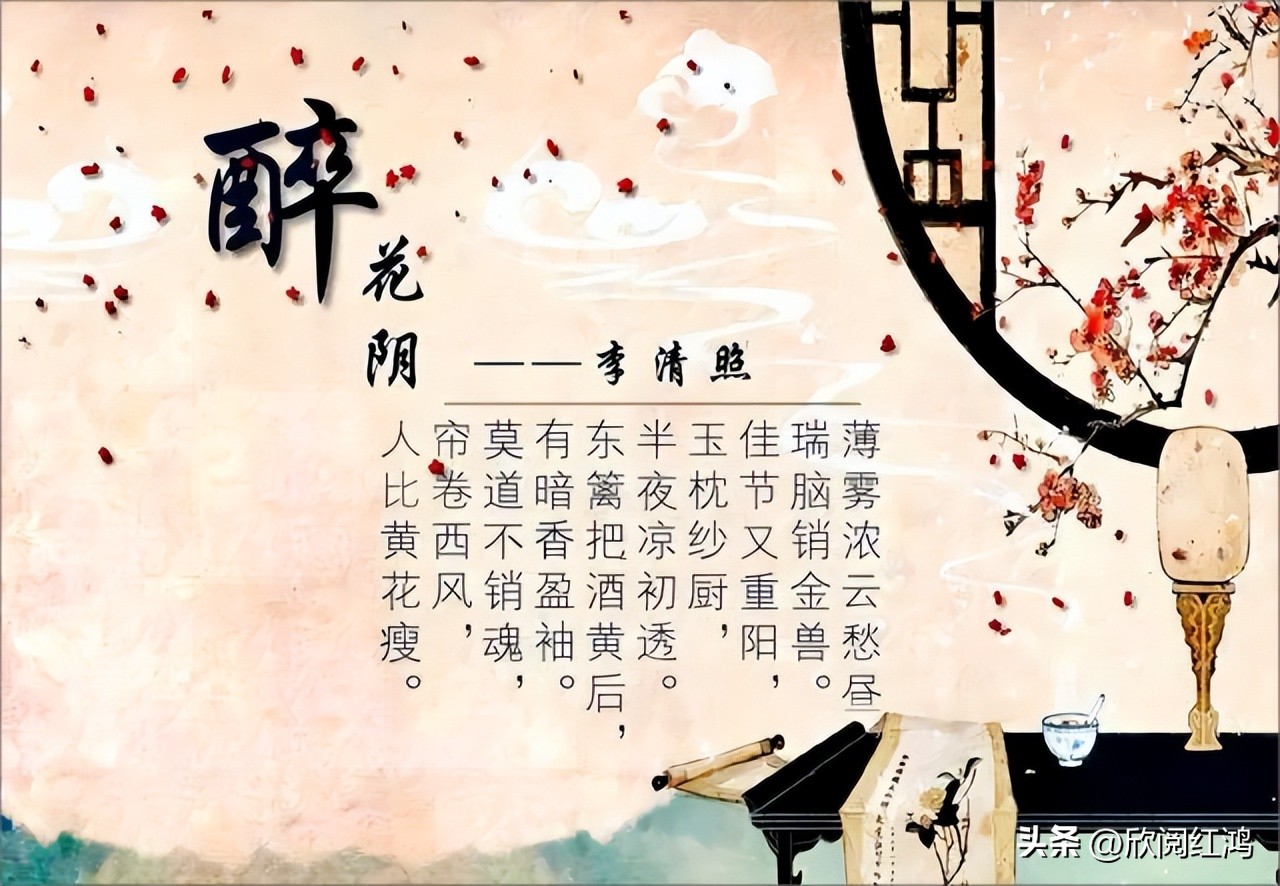 醉花阴
——李清照
薄雾浓云愁昼
瑞脑销金兽。
佳节又重阳，
玉枕纱厨，
半夜凉初透。
东篱把酒黄后，
有暗香盈袖。
莫道不销魂，
帘卷西风，
人比黄花瘦。
头条 @欣阅红鸿